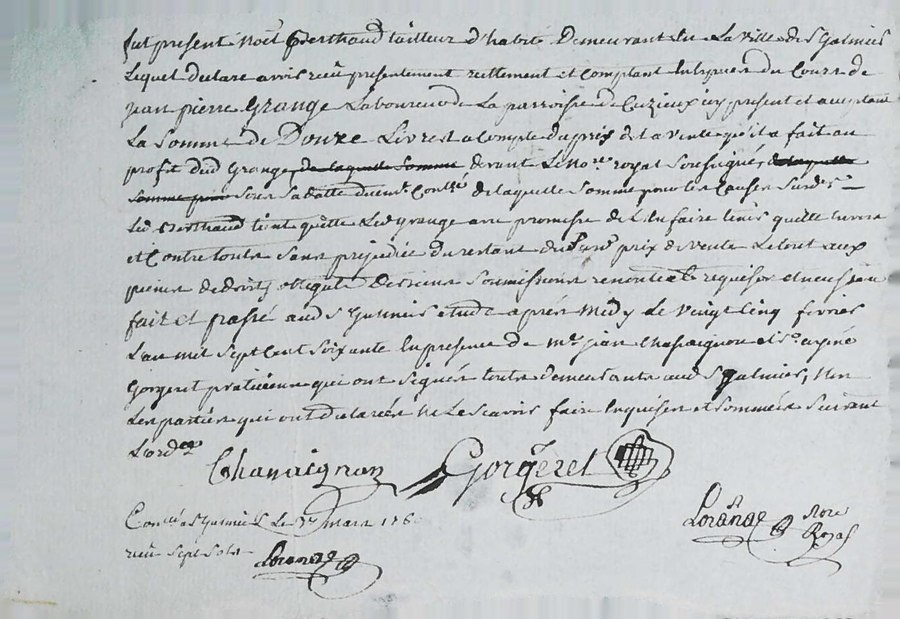 fut present Noël Berthaud tailleur d'habit Demeurant en La Ville de St Galmier
Lequel declare avoir reçu presentement reellement et comptant en espices du Cours de
jean pierre Grange Laboureur de La parroisse de Cuzieux icy present et acceptant
La Somme de Douze Livres a compte du prix de la vente qu'il a fait au
profit dud Grange de laquelle Somme devant Le nore royal Soussigné de laquelle
Somme Sous Sa datte deuemt Contlé de laquelle Somme pour les Causes Surdes
Led Berthaud tient quitte Led Grange avec promesse de L'en faire tenir quitte envers
et Contre touts Sans prejudice du restant dud prix de vente Le tout aux
peines de droit obligeant Soumissions renonce requises et
fait et passé aud St Galmier etude après Midy Le Vingt Cinq fevrier
L'an mil Sept Cent Soixante En presence de Me jean Chanaignon et Sr
Gorgeret praticiens qui ont Signés touts demeurants aud St galmier, Non
Les parties qui ont declarées ne Le Scavoir faire Enquises et Sommées Suivant
L'orde
Chanaignon Gorgeret
Contlé a St Galmier Le mars 176
reçu Sept Sols
Lorange Nore
Royal
Lorange